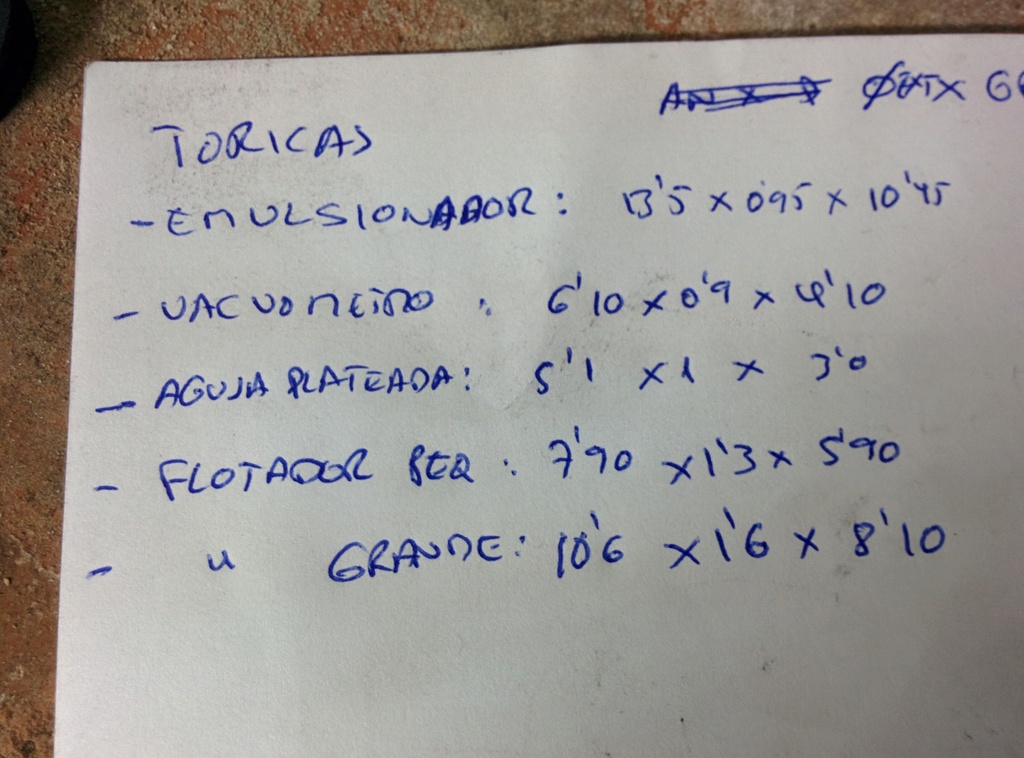 ØEXT X G
TORICAS
- EMULSIONADOR: 13'5 x 0'95 x 10'45
- VACUOMETRO : 6'10 x 0'9 x 4'10
- AGUJA PLATEADA: 5'1 x 1 x 3'0
- FLOTADOR PEQ : 7'90 x 1'3 x 5'90
- " GRANDE: 10'6 x 1'6 x 8'10